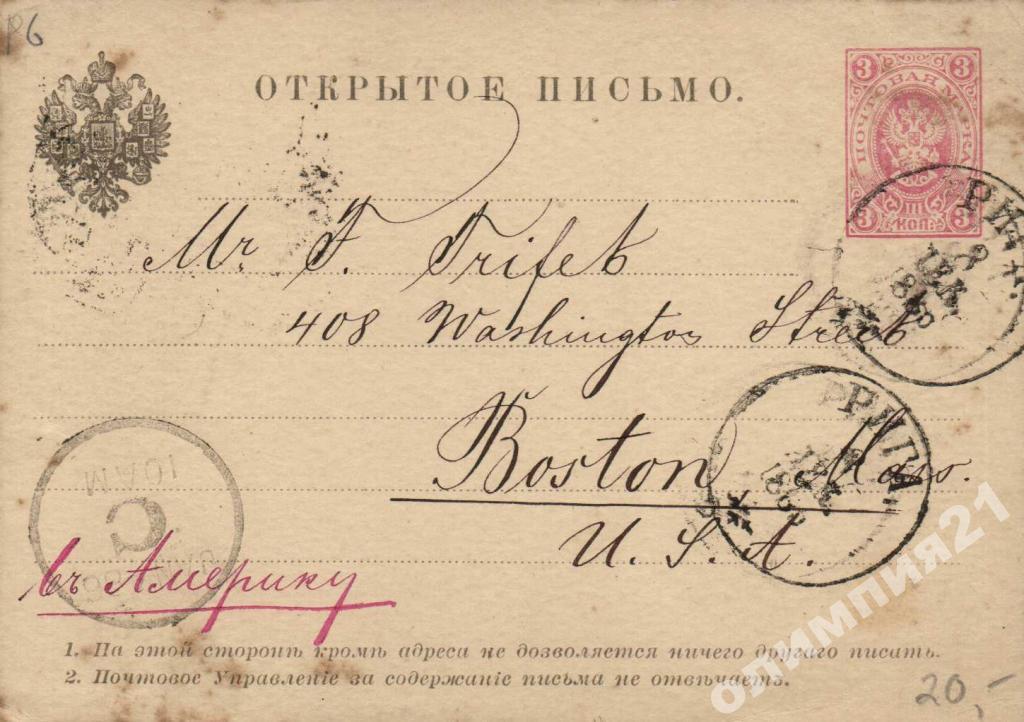 р6
ОТКРЫТОЕ ПИСЬМО.
3 3
ПОЧТОВАЯ МАРКА
3 III КОП: 3
РИГА
8
ДЕК
Mr F. Trifet
408 Washington Street
Boston Mass.
U. S. A.
РИГА
ДЕК
10 AM
C
въ Америку
1. На этой сторонѣ кромѣ адреса не дозволяется ничего другаго писать.
2. Почтовое Управленіе за содержаніе письма не отвѣчаетъ.
20,-
олимпия21